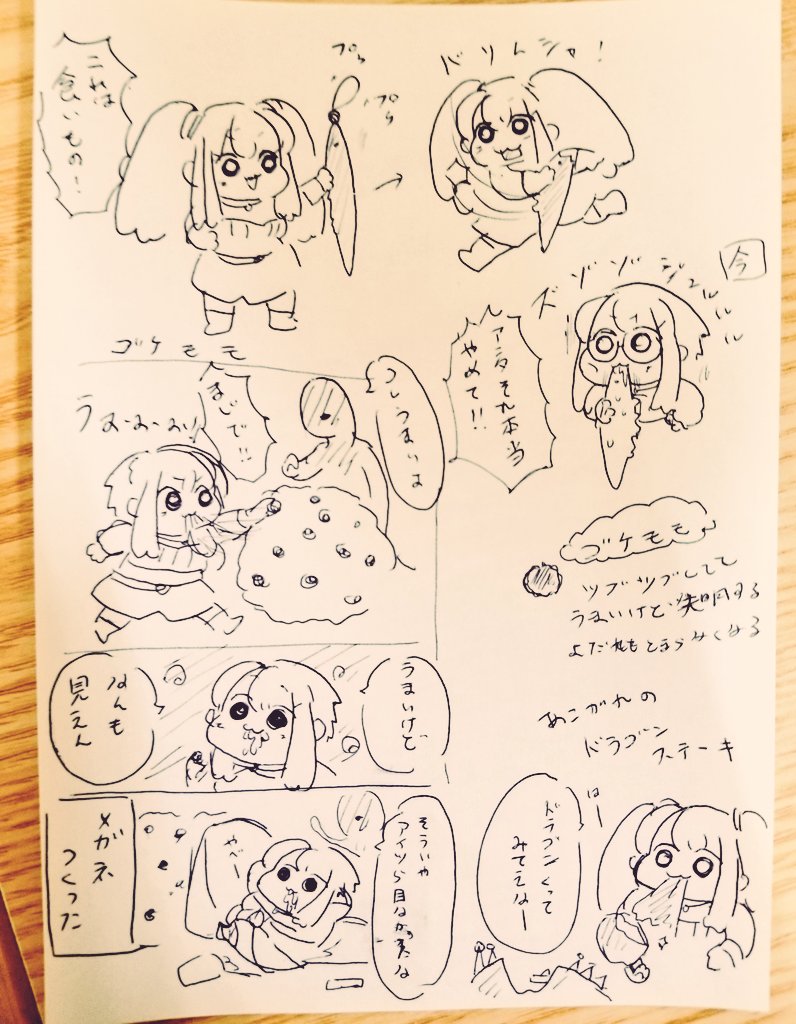 これは
食いもの!
プラ
プラ
ドリムシャ!
今
ズゾゾゾ
ジュルルルル
アンタそれ本当
やめて!!
ゴケモモ
うおーおーおい!
まじで!!
コレうまいよ
ゴケモモ
ツブツブしてて
うまいけど失明する
よだれもとまらなくなる
うまいけど
なんも
見えん
あこがれの
ドラゴン
ステーキ
はー
ドラゴンくって
みてえなー
そういや
アイツら目なかったな
やべー
メガネ
つくった